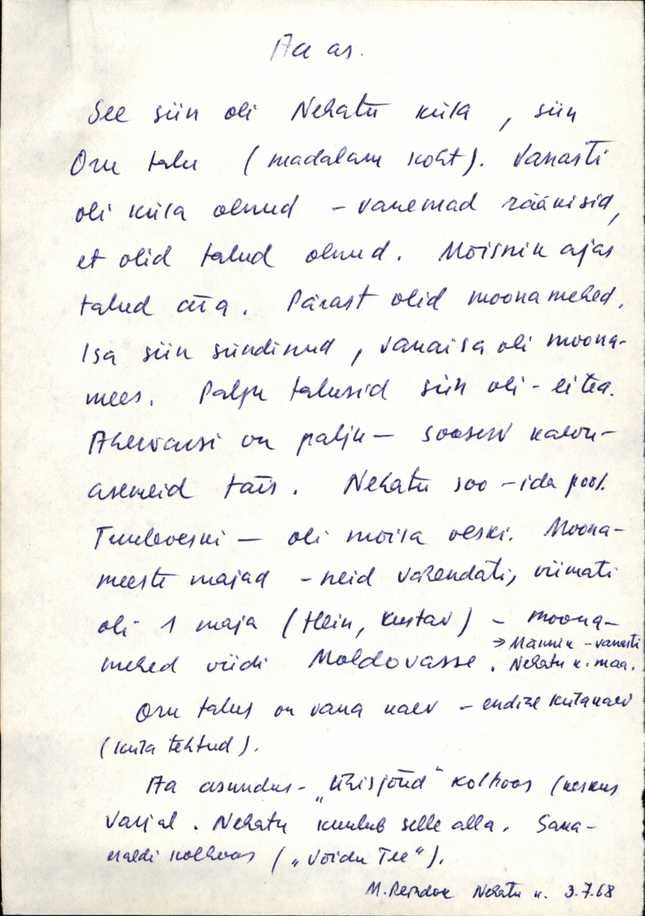 Aa as.
See siin oli Nehatu küla, siin
Oru talu (madalam koht). Vanasti
oli küla olnud – vanemad rääkisid,
et olid talud olnud. Mõisnik ajas
talud ära. Pärast olid moonamehed.
Isa siin sündinud, vanaisa oli moona-
mees. Palju talusid siin oli – ei tea.
Ahervarsi on palju – sooserv kaevu-
asemeid täis. Nehatu soo – ida pool.
Tuuleveski – oli mõisa veski. Moona-
meeste majad – neid vähendati, viimati
oli 1 maja (Hein, Kustav) – moona-
mehed viidi Moldovasse. → Männik – vanasti
Nehatu k. maa.
Oru talus on vana kaev – endine külakaev
(küla tehtud).
Aa asundus – „Ühisjõud" kolhoos (keskus
Varjal. Nehatu kuulub selle alla. Sama-
kolhoos („Võidu Tee").
M. Nehatu k. 3.7.68